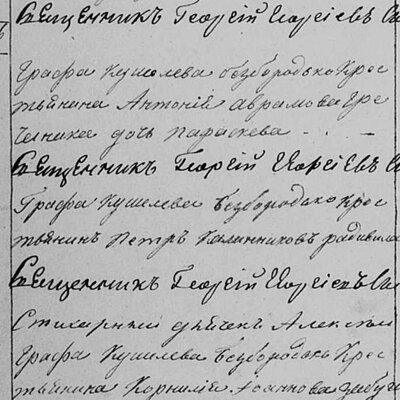 Священникъ Георгій Георгіевъ
Графа Кушелева безбородько Крес
тьянина Антоній Аврамова Гре
чишка дочь Параскева
Священникъ Георгій Георгіевъ
Графа Кушелева Безбородько крес
тьянинъ Петръ Калинниковъ
Священникъ Георгій Георгіевъ
Стихарный дьячекъ Алексѣй
Графа Кушелева Безбородько Крес
тьянина Корнилій Іоаннова